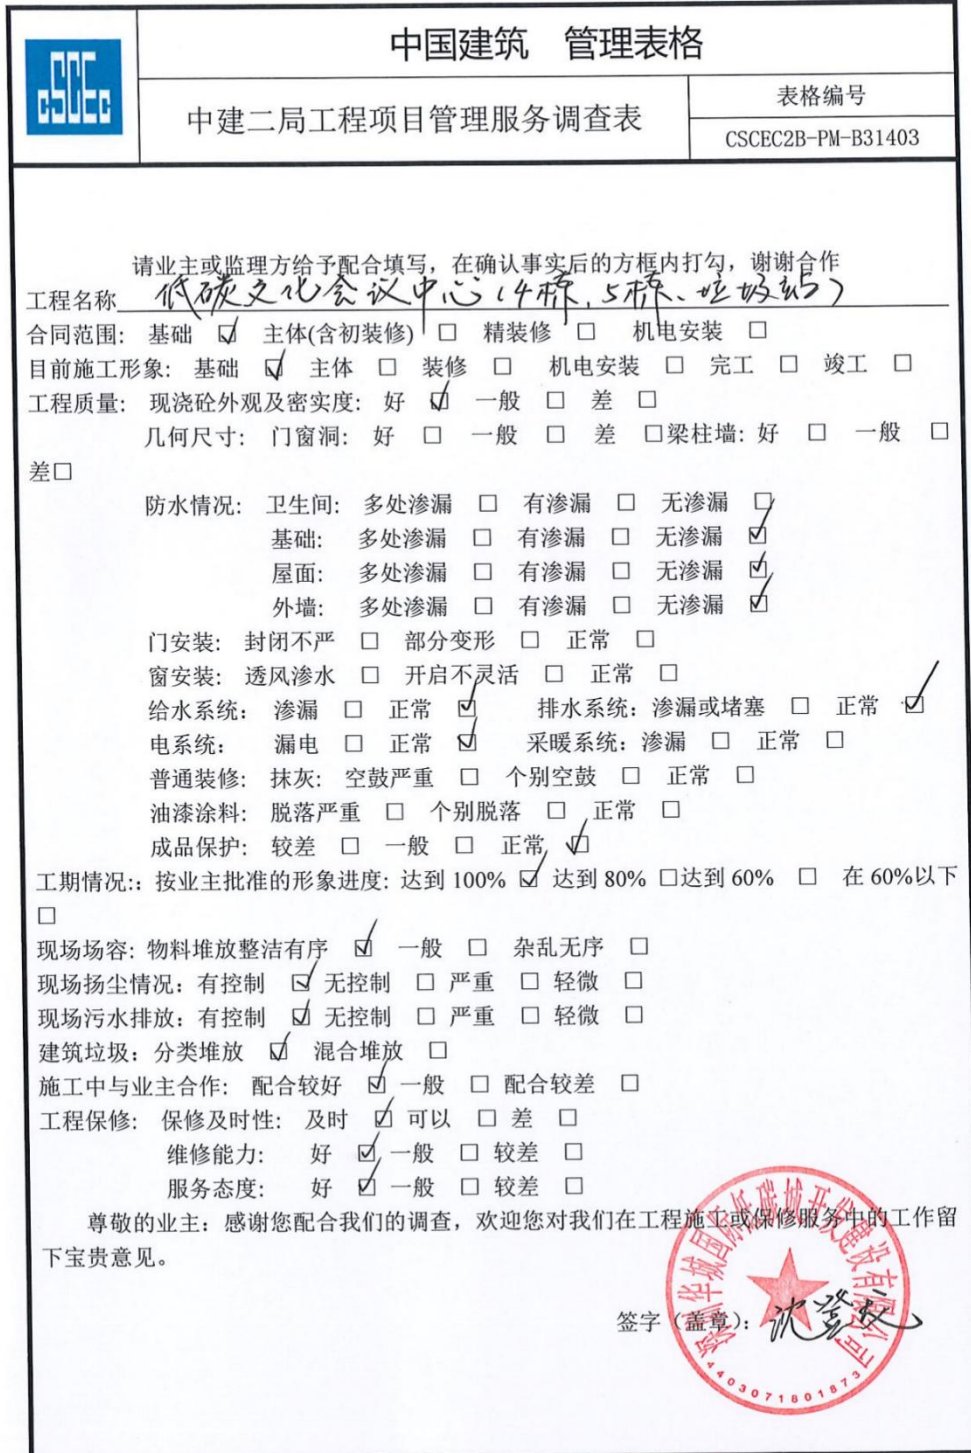 CSCEC
中国建筑 管理表格
中建二局工程项目管理服务调查表
表格编号
CSCEC2B-PM-B31403
请业主或监理方给予配合填写，在确认事实后的方框内打勾，谢谢合作
工程名称 低碳文化会议中心(4桥、5桥、垃圾站)
合同范围: 基础 ☑ 主体(含初装修) □ 精装修 □ 机电安装 □
目前施工形象: 基础 ☑ 主体 □ 装修 □ 机电安装 □ 完工 □ 竣工 □
工程质量: 现浇砼外观及密实度: 好 ☑ 一般 □ 差 □
几何尺寸: 门窗洞: 好 □ 一般 □ 差 □梁柱墙: 好 □ 一般 □
差□
防水情况: 卫生间: 多处渗漏 □ 有渗漏 □ 无渗漏 □
基础: 多处渗漏 □ 有渗漏 □ 无渗漏 ☑
屋面: 多处渗漏 □ 有渗漏 □ 无渗漏 ☑
外墙: 多处渗漏 □ 有渗漏 □ 无渗漏 ☑
门安装: 封闭不严 □ 部分变形 □ 正常 □
窗安装: 透风渗水 □ 开启不灵活 □ 正常 □
给水系统: 渗漏 □ 正常 ☑ 排水系统: 渗漏或堵塞 □ 正常 ☑
电系统: 漏电 □ 正常 ☑ 采暖系统: 渗漏 □ 正常 □
普通装修: 抹灰: 空鼓严重 □ 个别空鼓 □ 正常 □
油漆涂料: 脱落严重 □ 个别脱落 □ 正常 □
成品保护: 较差 □ 一般 □ 正常 ☑
工期情况:: 按业主批准的形象进度: 达到 100% ☑ 达到 80% □达到 60% □ 在 60%以下
□
现场场容: 物料堆放整洁有序 ☑ 一般 □ 杂乱无序 □
现场扬尘情况: 有控制 ☑ 无控制 □ 严重 □ 轻微 □
现场污水排放: 有控制 ☑ 无控制 □ 严重 □ 轻微 □
建筑垃圾: 分类堆放 ☑ 混合堆放 □
施工中与业主合作: 配合较好 ☑ 一般 □ 配合较差 □
工程保修: 保修及时性: 及时 ☑ 可以 □ 差 □
维修能力: 好 ☑ 一般 □ 较差 □
服务态度: 好 ☑ 一般 □ 较差 □
尊敬的业主: 感谢您配合我们的调查，欢迎您对我们在工程施工或保修服务中的工作留
下宝贵意见。
签字（盖章）: 沈登文
深圳华城国际低碳城开发建设有限公司
4403071801873